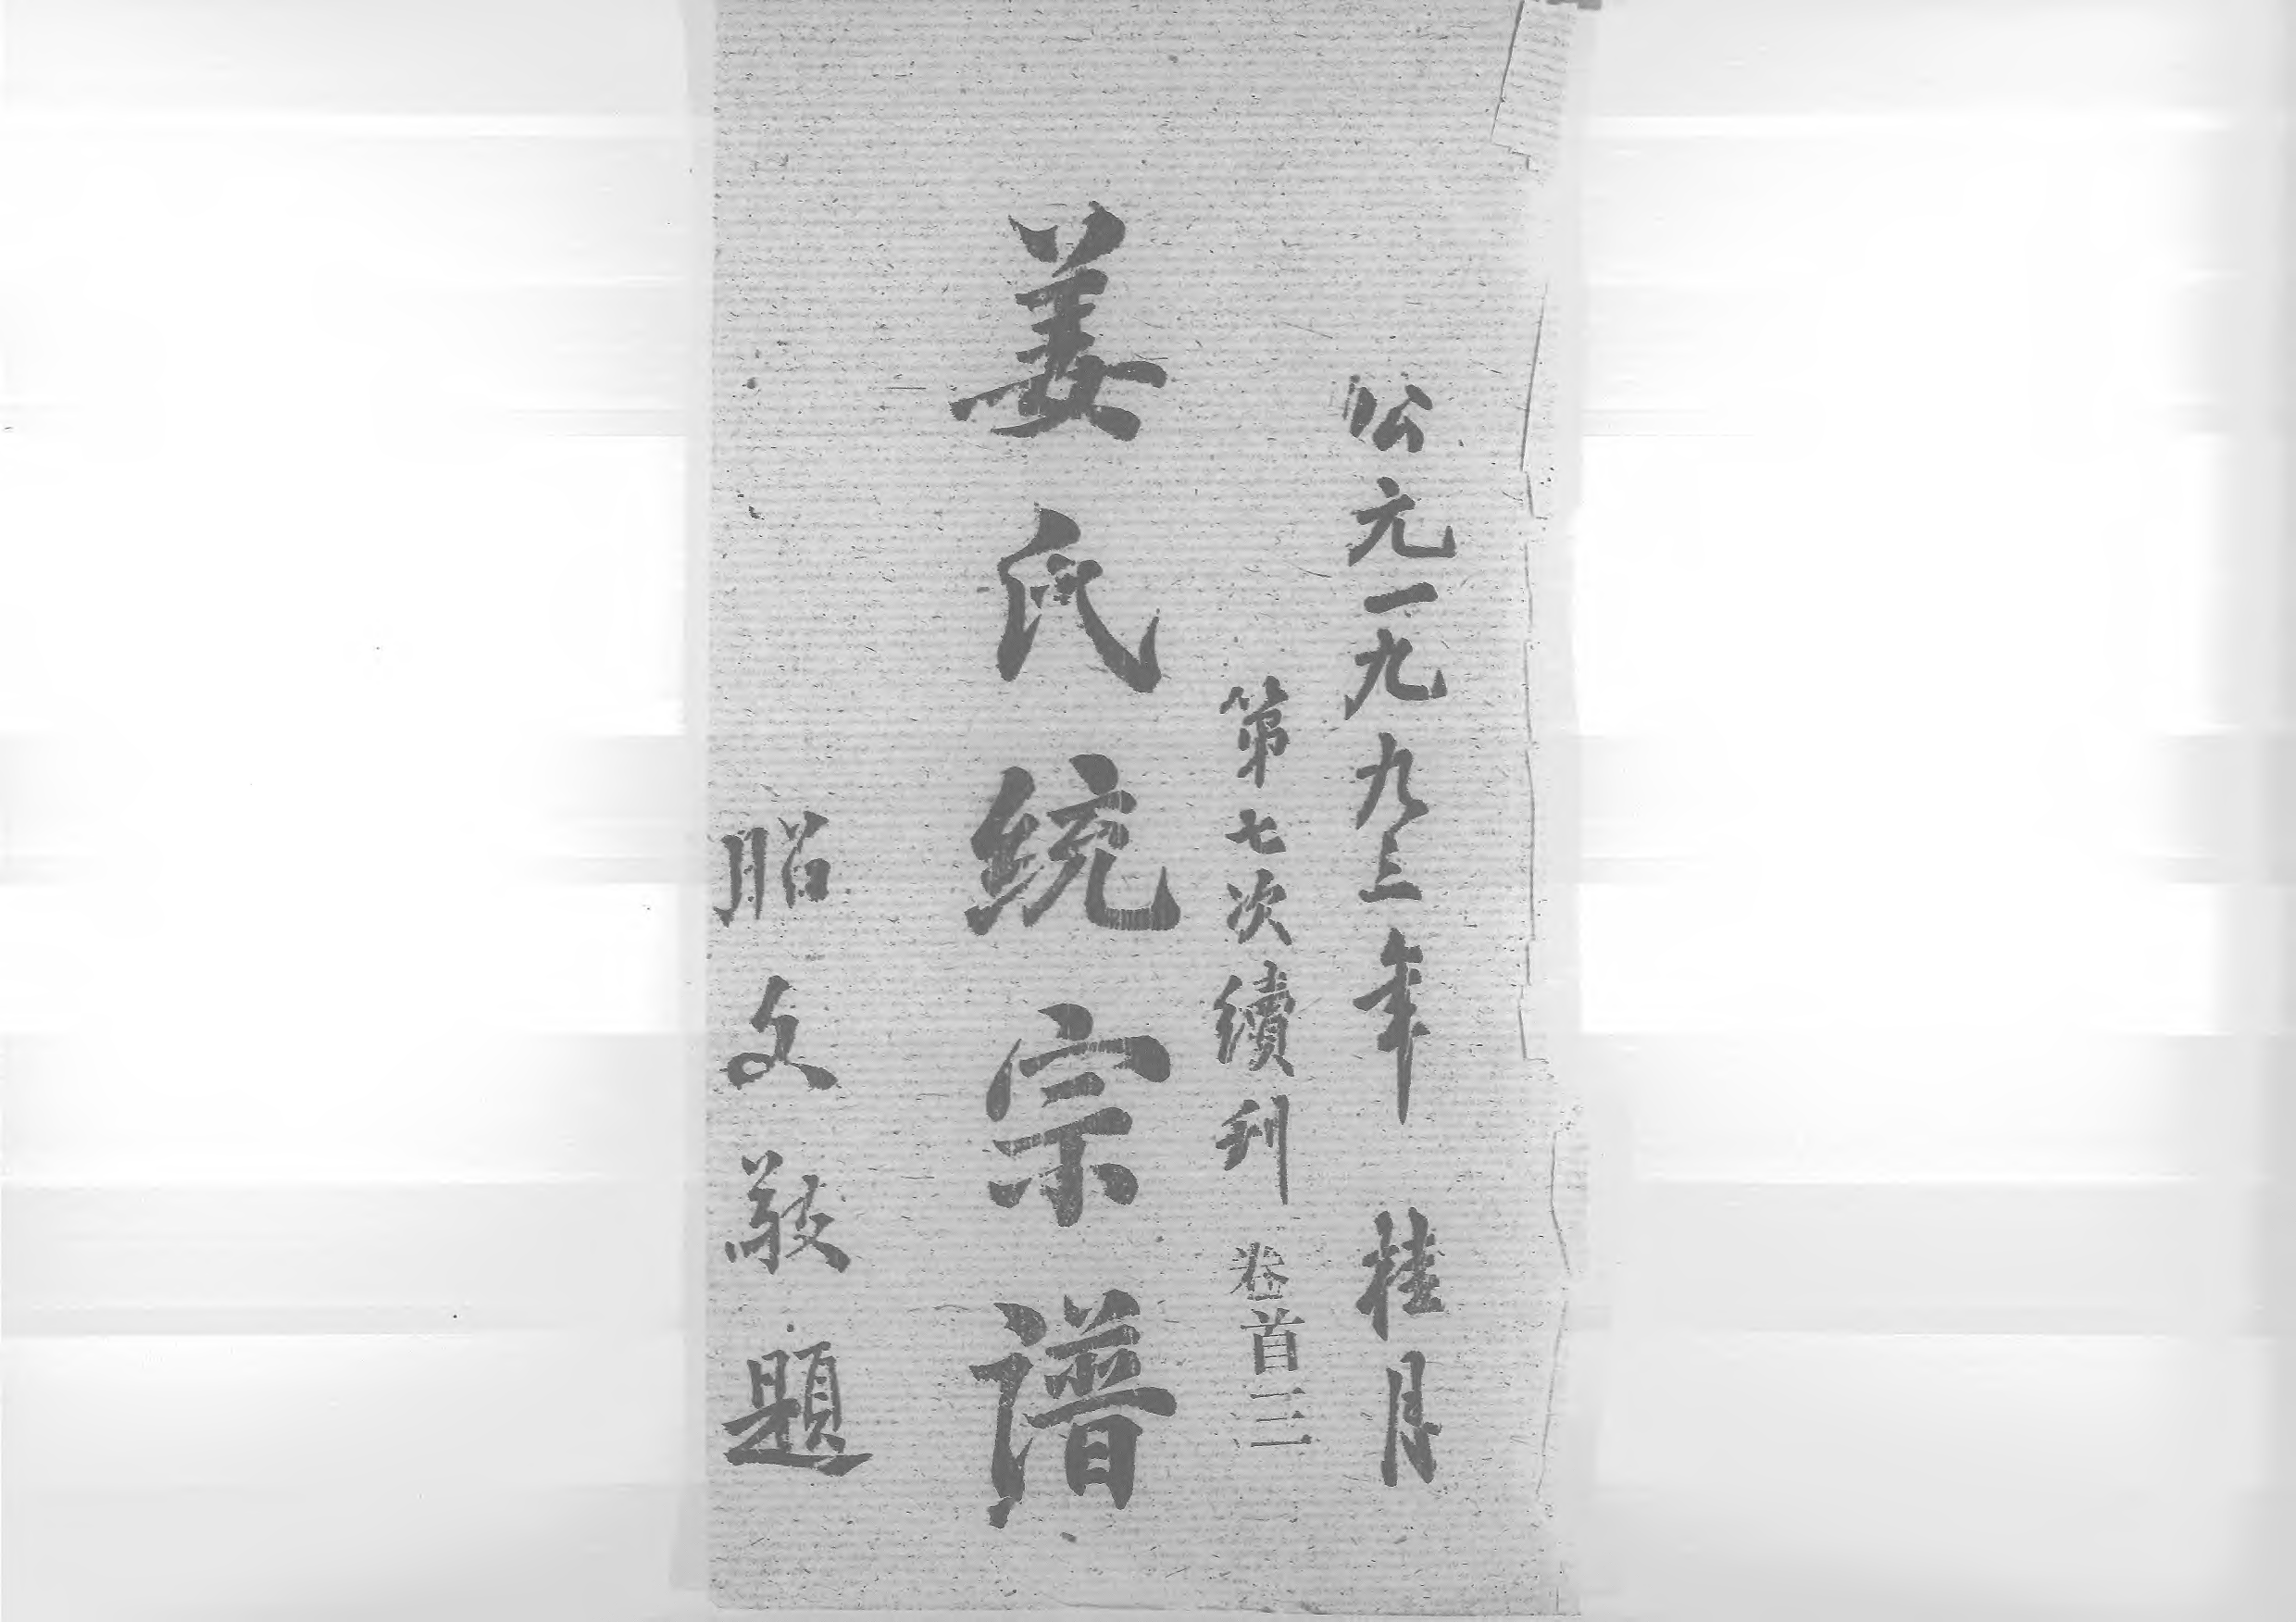 公元一九九三年 桂月
第七次續刊 卷首三
姜氏統宗谱
昭文敬題